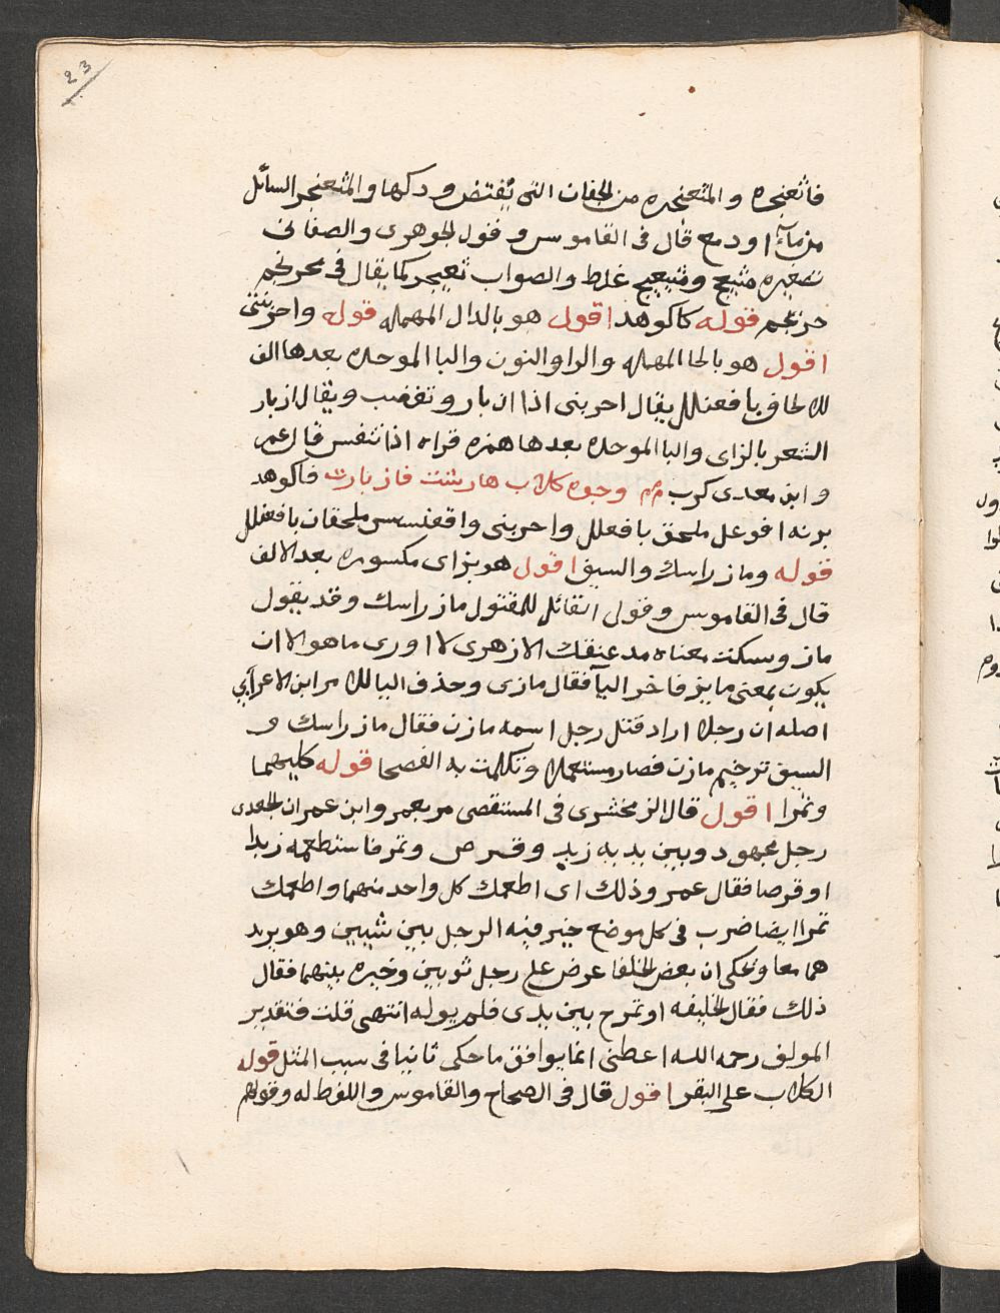 23
فاثعنجره والمثعنجره من الجفان التى يفتض ودكها والمثعنجر السائل
من ماء او دمع قال فى القاموس وقول الجوهرى والصغانى
تصغيره مثيعج ومثيعيج غلط والصواب ثعيجر كما يقال فى محرنجم
حريجم قوله كاكوهد اقول هو بالدال المهمله قوله واحرنبى
اقول هو بالحا المهمله والرا والنون والبا الموحده بعدها الف
للالحاق بافعنلل يقال احرنبى اذا ازبار وتغضب ويقال ازبار
الشعر بالزاى والبا الموحده بعدها همزه قراه اذا تنفس قال عمر
و ابن معدى كرب وجوه كلاب هارشت فازبارت فاكوهد
برنه افوعل ملحق بافعلل واحربنى واقعنسس ملحقان بافعنلل
قوله وماز راسك والسيف اقول هو بزاى مكسوره بعد الالف
قال فى القاموس وقول القائل للمقتول ماز راسك وقد يقول
ماز وسكت معناه مد عنقك الازهرى لا ادرى ما هو الا ان
يكون بمعنى مايز فاخر اليآ فقال مازى وحذف اليا للامر ابن الاعرابي
اصله ان رجلا اراد قتل رجل اسمه مازن فقال ماز راسك و
السيف ترخيم مازن فصار مستعملا وتكلمت به الفصحا قوله كليهما
وتمرا اقول قال الزمخشرى فى المستقصى مر بعمرو ابن عمران الجعدى
رجل مجهود وبين يديه زبد وقرص وتمر فاستطعمه زبدا
او قرصا فقال عمرو ذلك اى اطعمك كل واحد منهما واطعمك
تمرا ايضا ضرب فى كل موضع خير فيه الرجل بين شيين وهو يريد
هما معا وحكى ان بعض الخلفا عرض على رجل ثوبين وخيره بينهما فقال
ذلك فقال الخليفه او تمزح بين يدى فلم يوله انتهى قلت فتقدير
المولف رحمه الله اعطنى انما يوافق ما حكى ثانيا فى سبب المثل قوله
الكلاب على البقر اقول قال فى الصحاح والقاموس واللفظ له وقولهم